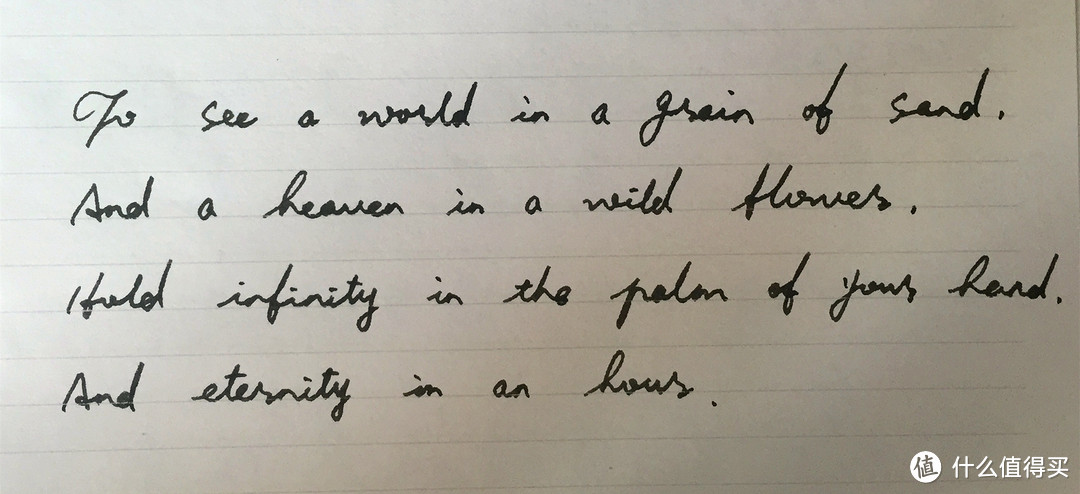 To see a world in a grain of sand.
And a heaven in a wild flower.
Hold infinity in the palm of your hand.
And eternity in an hour.
值 什么值得买